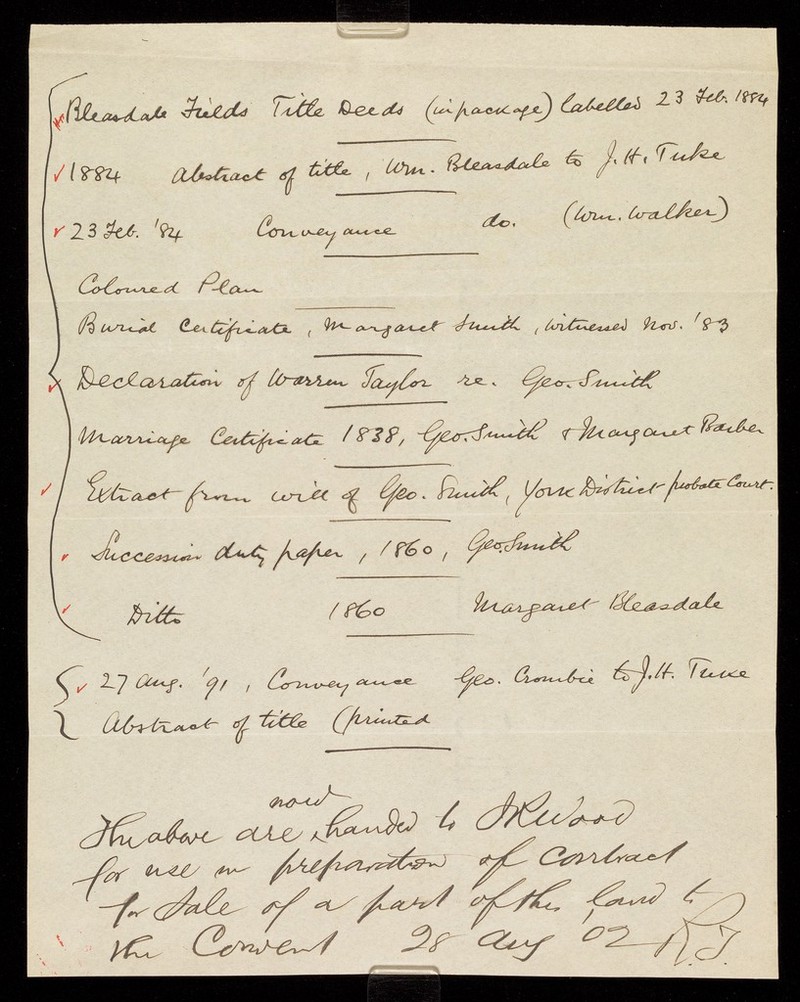 Bleasdale Fields Title Deeds (in package) labelled 23 Feb. 1884
1884 Abstract of title, Wm. Bleasdale to J. H. Tuke
23 Feb. '84 Conveyance do. (Wm. Walker)
Coloured Plan
Burial Certificate, Margaret Smith, witnessed Nov. '83
Declaration of Warren Taylor re. Geo. Smith
Marriage Certificate 1838, Geo. Smith & Margaret Barber
Extract from will of Geo. Smith, York District Probate Court.
Succession duty paper, 1860, Geo. Smith
Ditto 1860 Margaret Bleasdale
27 Aug. '91, Conveyance Geo. Crombie to J. H. Tuke
Abstract of title (printed
now
The above are handed to J R Wood
for use in preparation of contract
for sale of a part of this land to
the Convent 28 Aug '02 R. T.